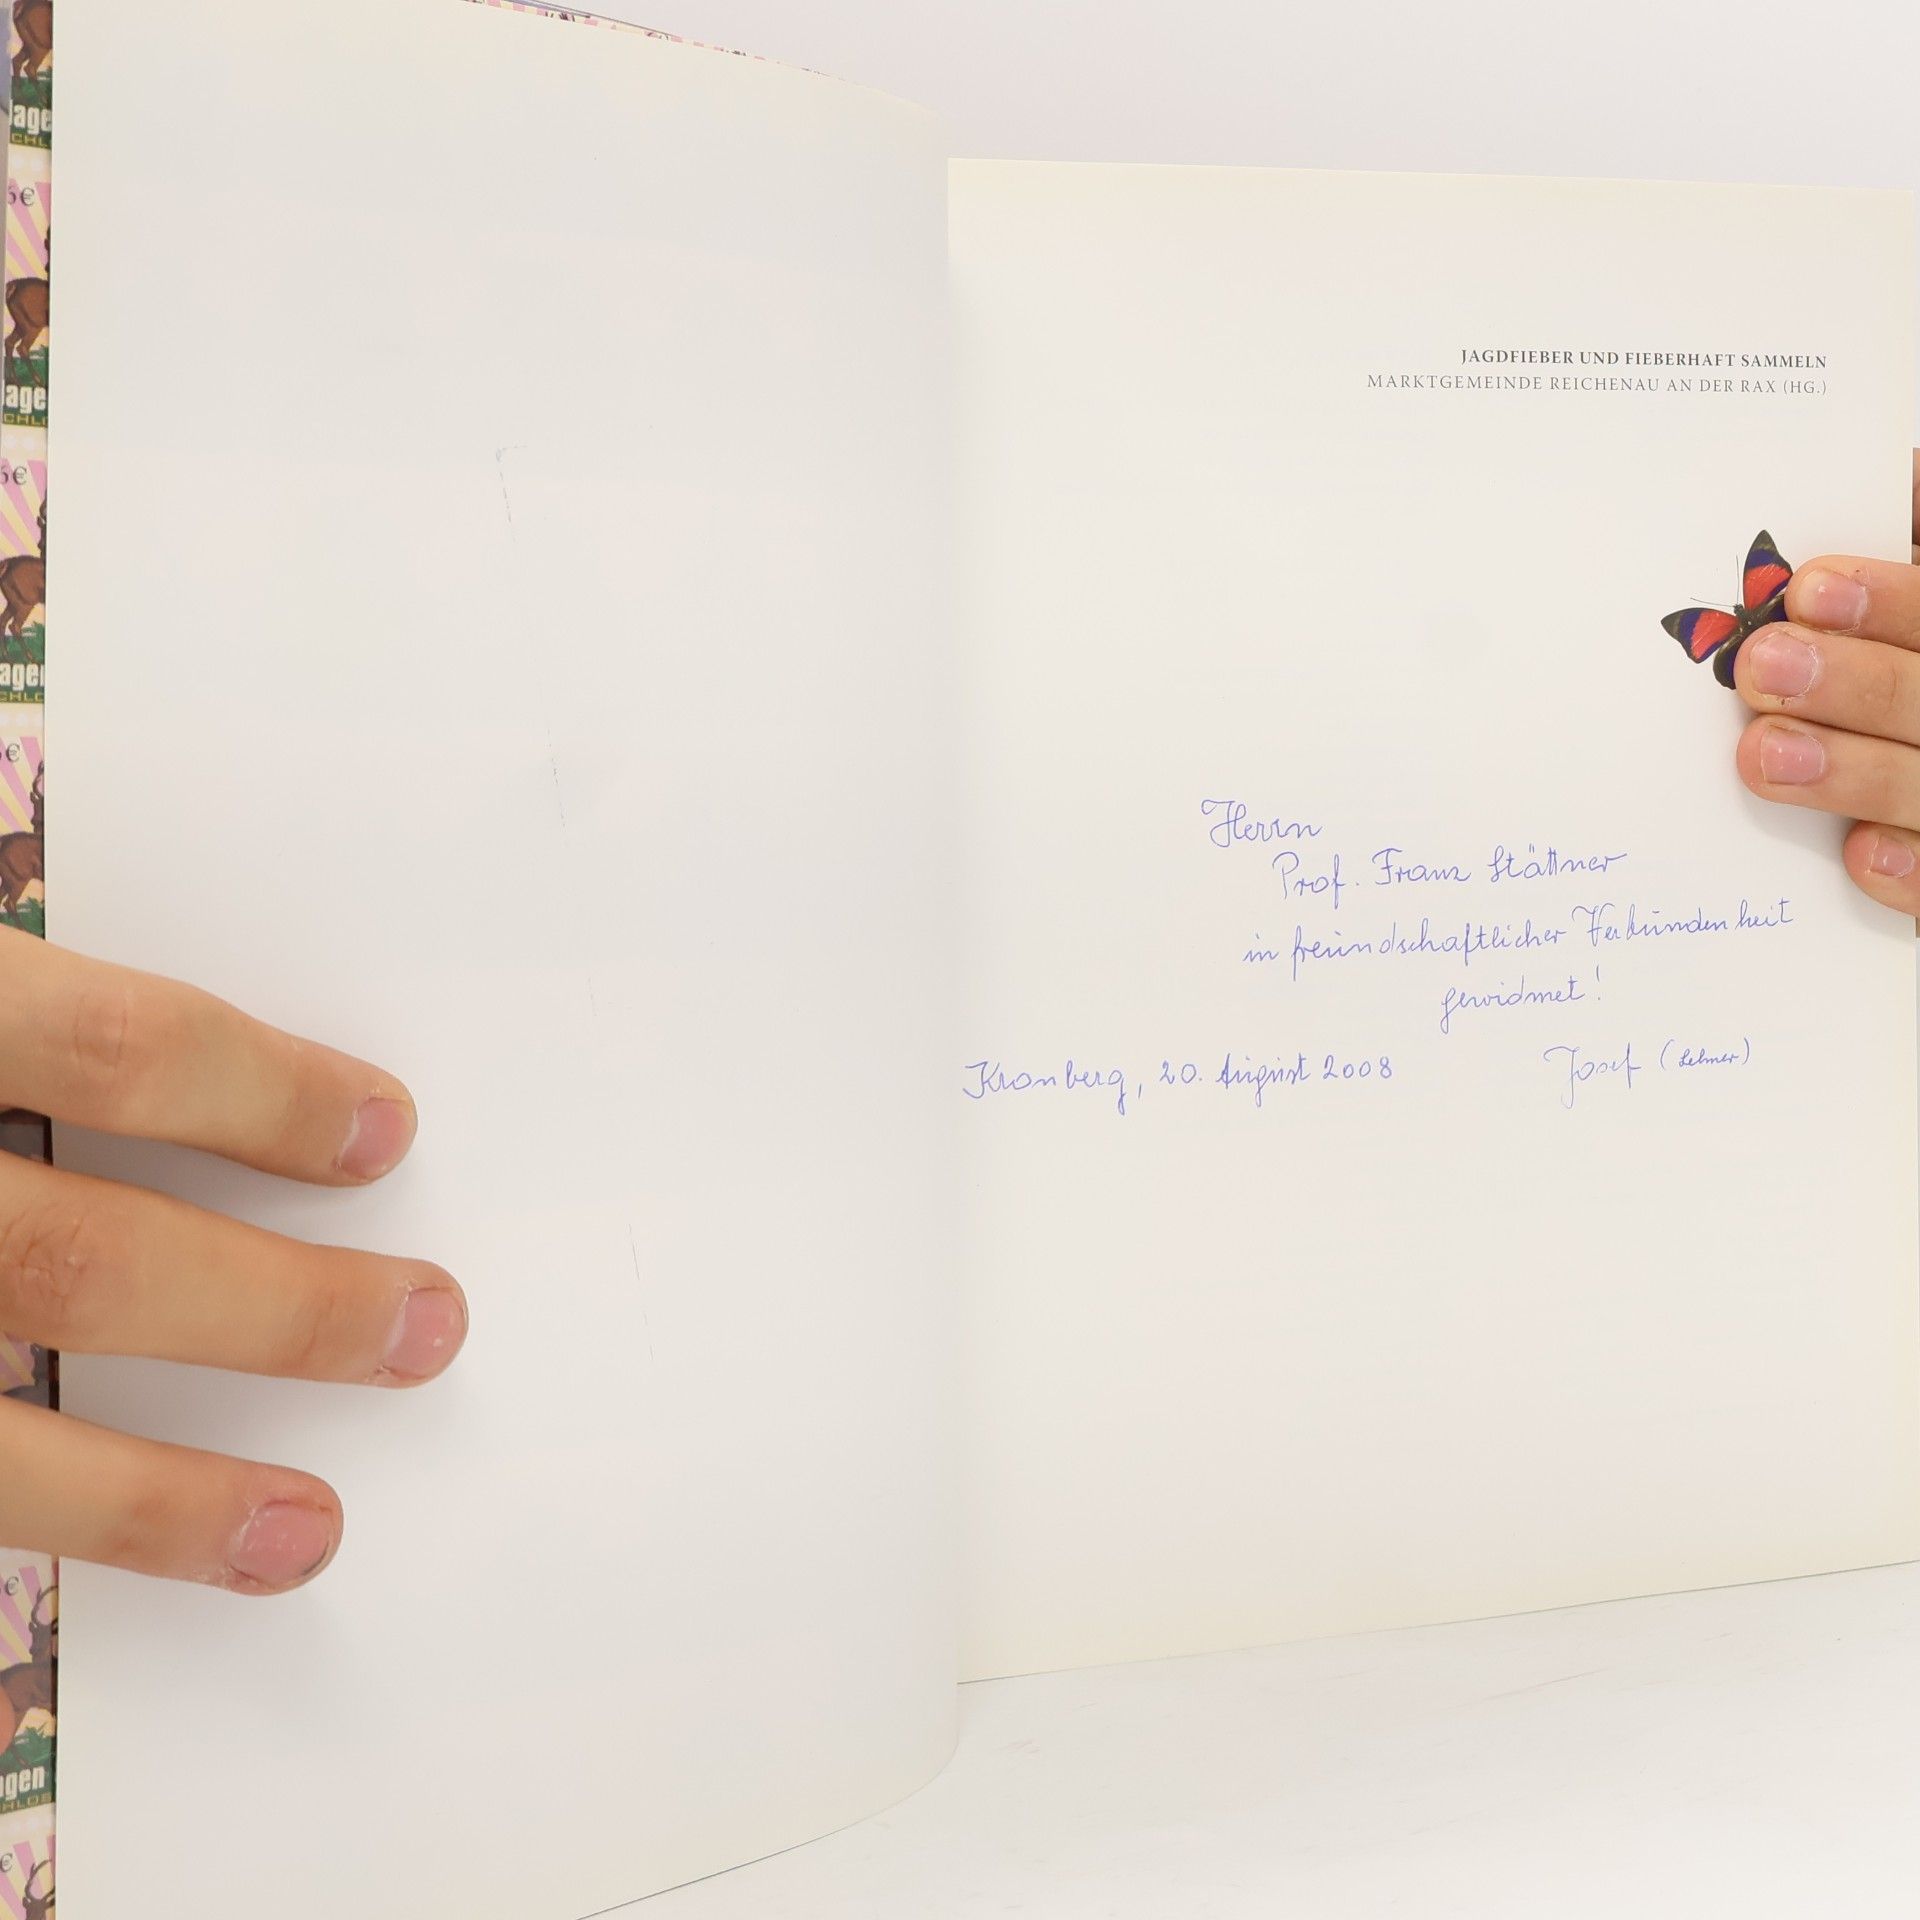 JAGDFIEBER UND FIEBERHAFT SAMMELN
MARKTGEMEINDE REICHENAU AN DER RAX (HG.)
Herrn
Prof. Franz Stättner
in freundschaftlicher Verbundenheit
gewidmet!
Kronberg, 20. August 2008
Josef (Lehner)